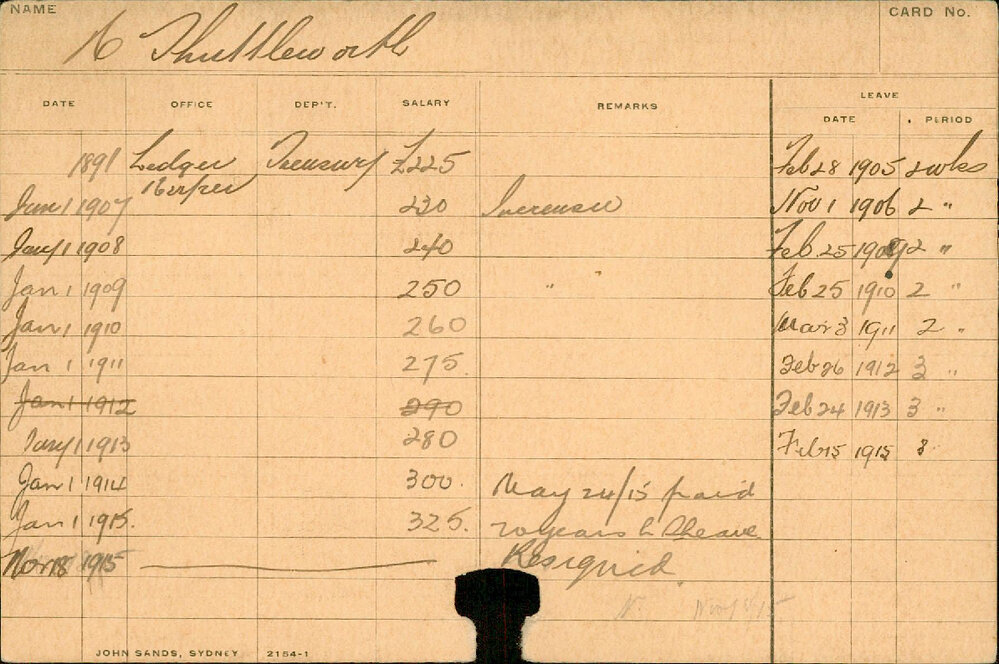 NAME
CARD No.
Shuttleworth
DATE OFFICE DEP'T. SALARY REMARKS LEAVE
DATE PERIOD
1891 Ledger Treasury £225 Feb 28 1905 2 wks
Keeper
Jan 1 1907 230 Increase Nov 1 1906 2 "
Jany 1 1908 240 Feb. 25 1909 2 "
Jan 1 1909 250 " Feb 25 1910 2 "
Jan 1 1910 260 Mar 3 1911 2 "
Jan 1 1911 275. Feb 26 1912 3 "
Jan 1 1912 290 Feb 24 1913 3 "
Jany 1 1913 280 Feb 15 1915 3
Jan 1 1914 300. May 24/15 paid
Jan 1 1915. 325. 20 years L S leave
Nov 18 1915 Resigned.
JOHN SANDS, SYDNEY 2154-1